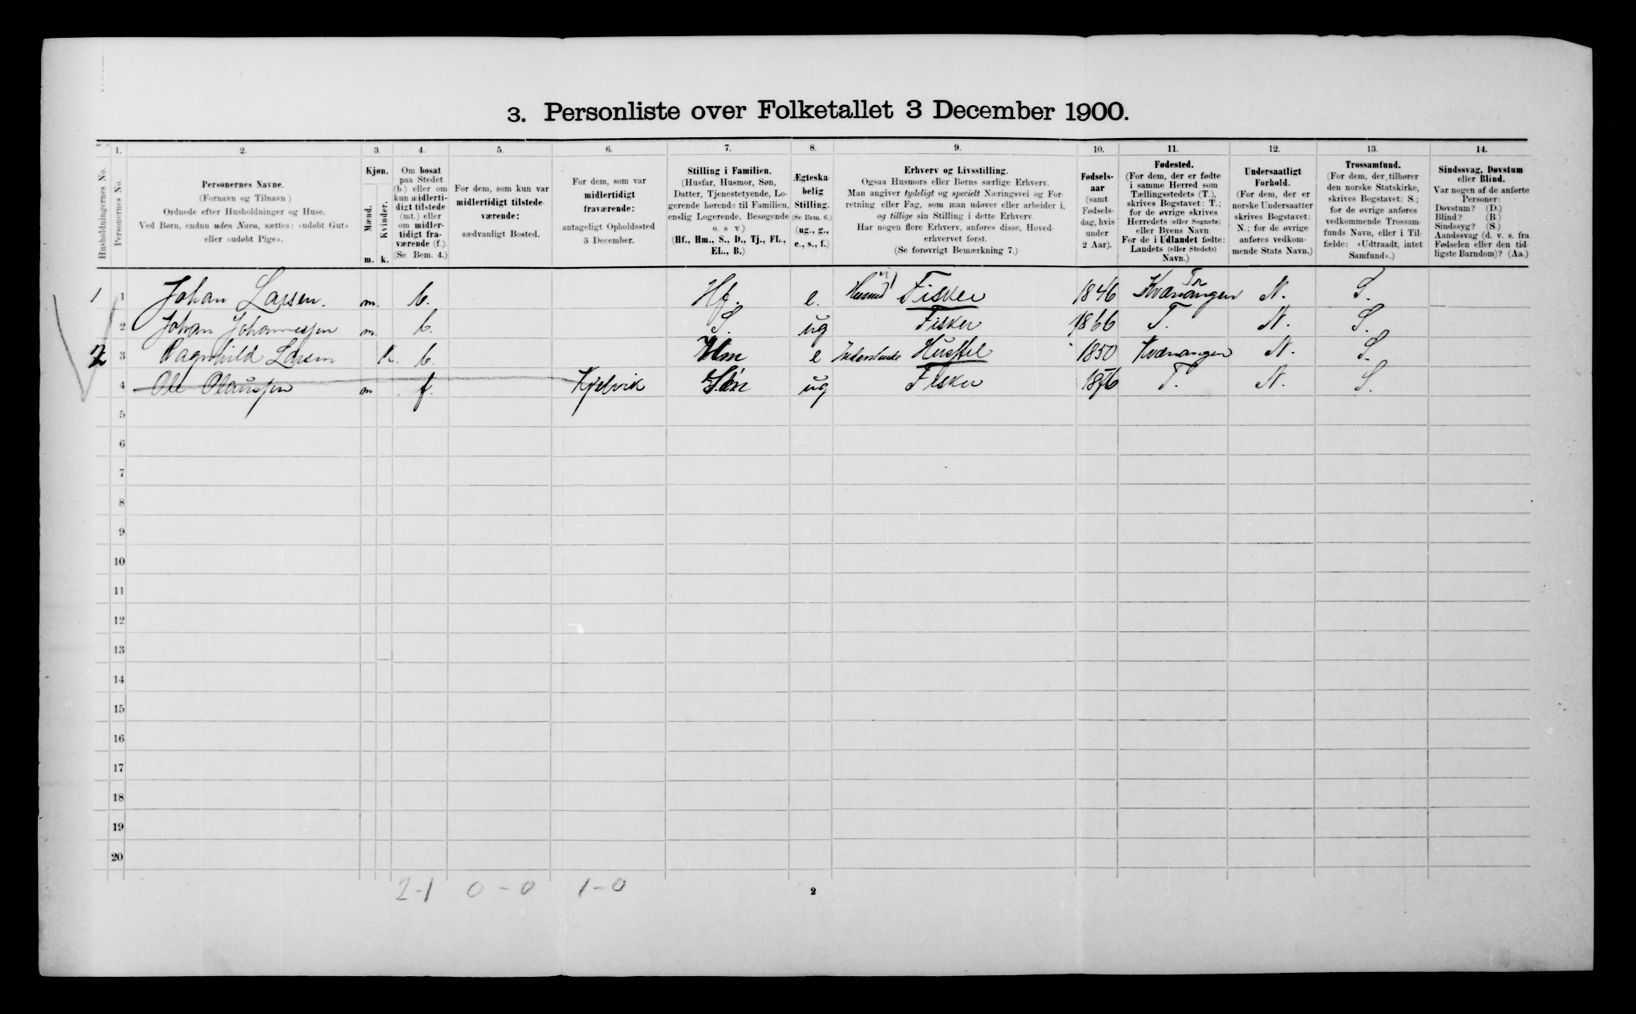 3. Personliste over Folketallet 3 December 1900.
1. 2. 3. 4. 5. 6. 7. 8. 9. 10. 11. 12. 13. 14.
Husholdningernes No.
Personernes No.
Personernes Navne.
(Fornavn og Tilnavn)
Ordnede efter Husholdninger og Huse.
Ved Børn, endnu uden Navn, sættes: «udøbt Gut»
eller «udøbt Pige».
Kjøn.
Mænd.
Kvinder.
m. k.
Om bosat
paa Stedet
(b.) eller om
kun midlerti-
digt tilstede
(mt.) eller
om midler-
tidigt fra-
værende (f.)
(Se Bem. 4.)
For dem, som kun var
midlertidigt tilstede-
værende:
sædvanligt Bosted.
For dem, som var
midlertidigt
fraværende:
antageligt Opholdssted
3 December.
Stilling i Familien.
(Husfar, Husmor, Søn,
Datter, Tjenestetyende, Lo-
gerende hørende til Familien,
enslig Logerende, Besøgende
o. s v.)
(Hf., Hm., S., D., Tj., FL.,
EL., B.)
Ægteska-
belig
Stilling.
(Se Bem. 6.)
(ug., g.,
e., s., f.)
Erhverv og Livsstilling.
Ogsaa Husmors eller Børns særlige Erhverv.
Man angiver tydeligt og specielt Næringsvei og For-
retning eller Fag, som man udøver eller arbeider i,
og tillige sin Stilling i dette Erhverv.
Har nogen flere Erhverv, anføres disse, Hoved-
erhvervet først.
(Se forøvrigt Bemærkning 7.)
Fødsels-
aar
(samt
Fødsels-
dag, hvis
under
2 Aar).
Fødested.
(For dem, der er fødte
i samme Herred som
Tællingsstedets (T.),
skrives Bogstavet: T.;
for de øvrige skrives
Herredets (eller Sognets)
eller Byens Navn
For de i Udlandet fødte:
Landets (eller Stedets)
Navn.)
Undersaatligt
Forhold.
(For dem, der er
norske Undersaatter
skrives Bogstavet:
N.; for de øvrige
anføres vedkom-
mende Stats Navn.)
Trossamfund.
(For dem, der tilhører
den norske Statskirke,
skrives Bogstavet: S.;
for de øvrige anføres
vedkommende Trossam-
funds Navn, eller i Til-
fælde: «Udtraadt, intet
Samfund».)
Sindssvag, Døvstum
eller Blind.
Var nogen af de anførte
Personer:
Døvstum? (D.)
Blind? (B.)
Sindssyg? (S.)
Aandssvag (d. v. s. fra
Fødselen eller den tid-
ligste Barndom)? (Aa.)
1 1 Johan Larsen. m. b. Hf. e. Fisker 1846 Kvænangen N. S.
2 Johan Johannessen m. b. S. ug Fisker 1866 T. N. S.
2 3 Ragnhild Larsen K. b Hm e Husflid 1850 Kvænangen N. S.
4 Ole Olaussen m f. Kjelvik Søn ug Fisker 1876 T. N. S.
5
6
7
8
9
10
11
12
13
14
15
16
17
18
19
20
2-1 0-0 1-0
2